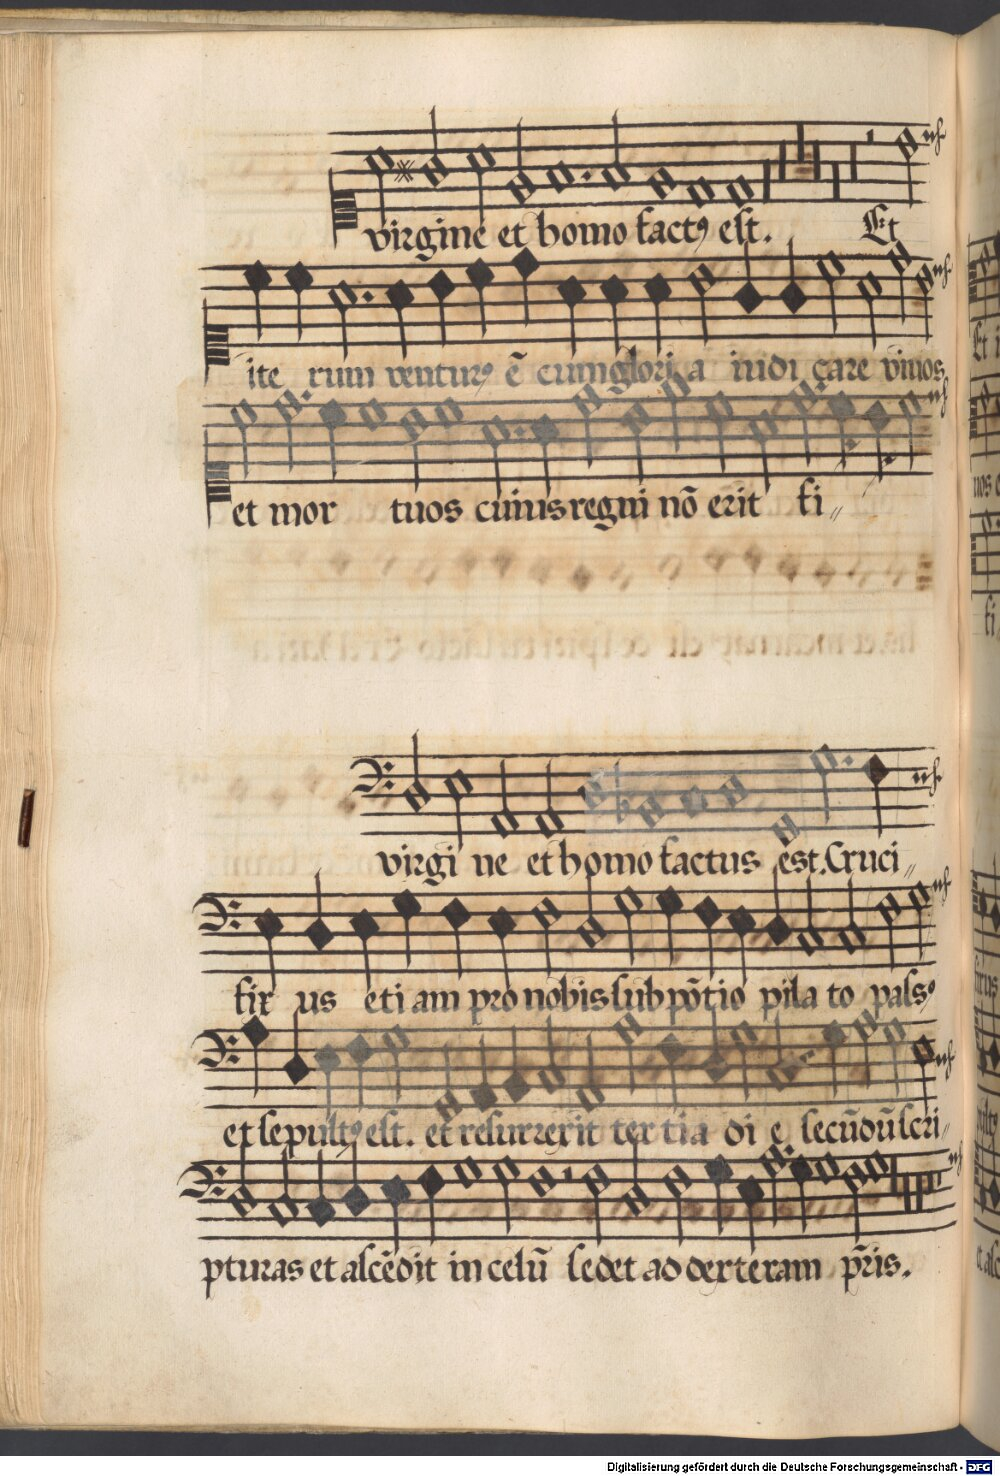 virgine et homo fact⁹ est. Et
ite rum ventur⁹ ē cum glori a iudi care vivos
et mor tuos cuius regni nō erit fi〃
virgi ne et homo factus est. Cruci〃
fix us eti am pro nobis sub pōtio pila to pass⁹
et sepult⁹ est. et resurrexit ter tia di e secūdū scri〃
pturas et ascēdit in celū sedet ad dexteram p̄ris.
Digitalisierung gefördert durch die Deutsche Forschungsgemeinschaft - DFG